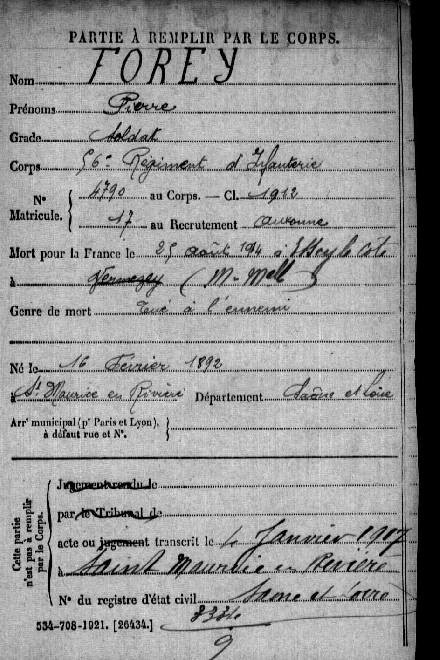 PARTIE À REMPLIR PAR LE CORPS.
Nom FOREY
Prénoms Pierre
Grade Soldat
Corps 56e Régiment d'Infanterie
No Matricule. { 4790 au Corps. — Cl. 1912
17 au Recrutement Auxonne
Mort pour la France le 25 août 1914 à Essey la Côte
à Vennezey (M-Mlle)
Genre de mort Tué à l'ennemi
Né le 16 Février 1892
à St Maurice en Rivière Département Saône et Loire
Arrt municipal (pr Paris et Lyon),
à défaut rue et No.
Cette partie n'est pas à remplir par le Corps.
Jugement rendu le
par le Tribunal de
acte ou jugement transcrit le Janvier 1917
à Saint Maurice en Rivière
No du registre d'état civil Saone et Loire
534-708-1921. [26434.]
9